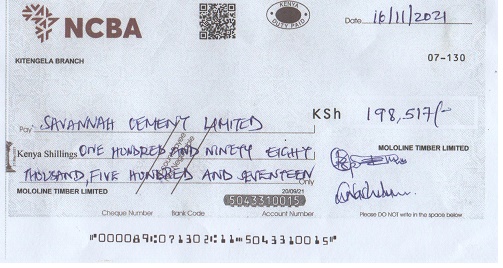 NCBA
KENYA
DUTY PAID
Date 16/11/2021
07-130
KITENGELA BRANCH
Pay SAVANNAH CEMENT LIMITED
KSh 198,517/-
Kenya Shillings ONE HUNDRED AND NINETY EIGHTY
THOUSAND, FIVE HUNDRED AND SEVENTEEN
Only
MOLOLINE TIMBER LIMITED
MOLOLINE TIMBER LIMITED
20/09/21
5043310015
Cheque Number Bank Code Account Number
Please DO NOT write in the space below
⑈000089⑆071302⑆11⑉5043310015⑈